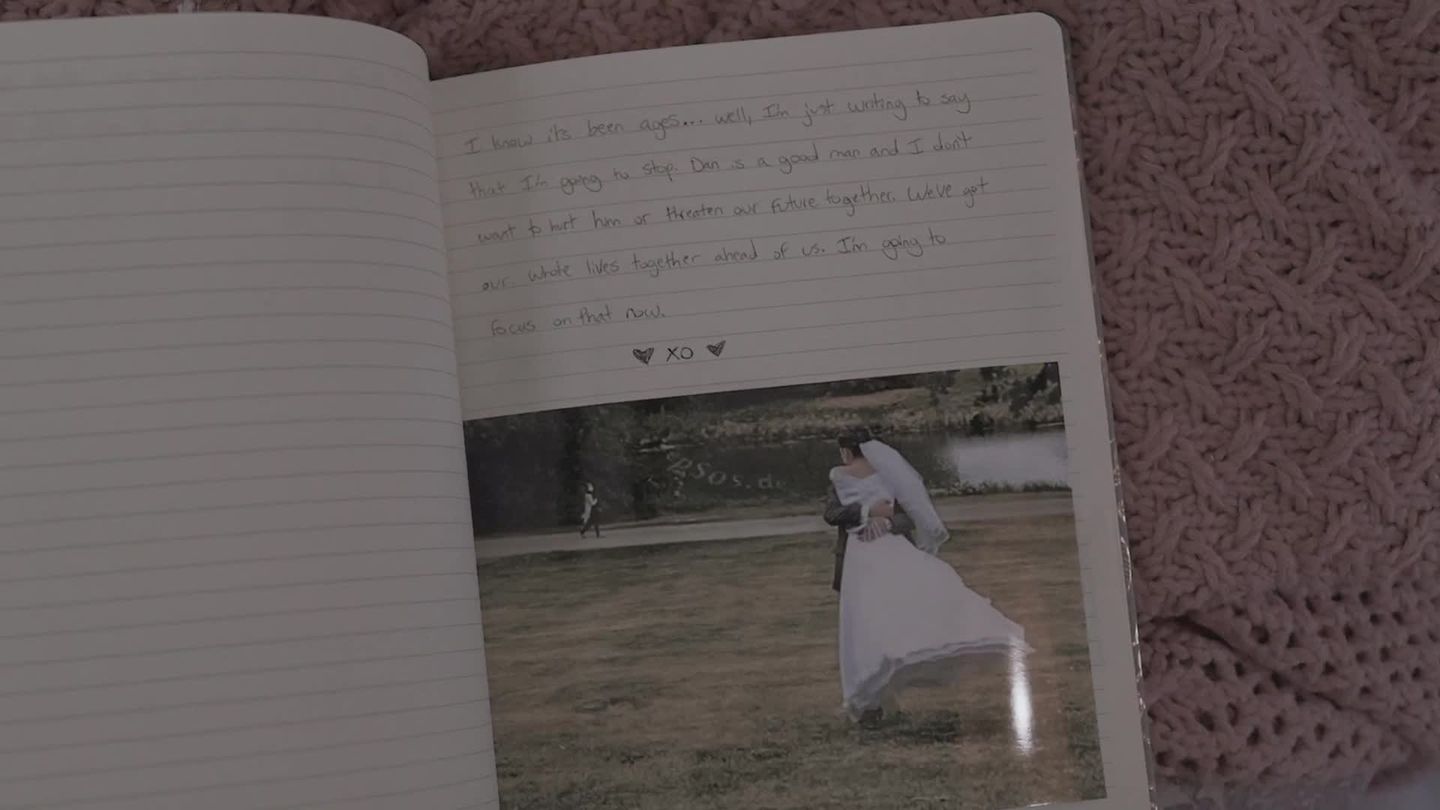 I know its been ages... well, I'm just writing to say
that I'm going to stop. Dan is a good man and I don't
want to hurt him or threaten our future together. We've got
our whole lives together ahead of us. I'm going to
focus on that now.
♥ XO ♥
psos.de